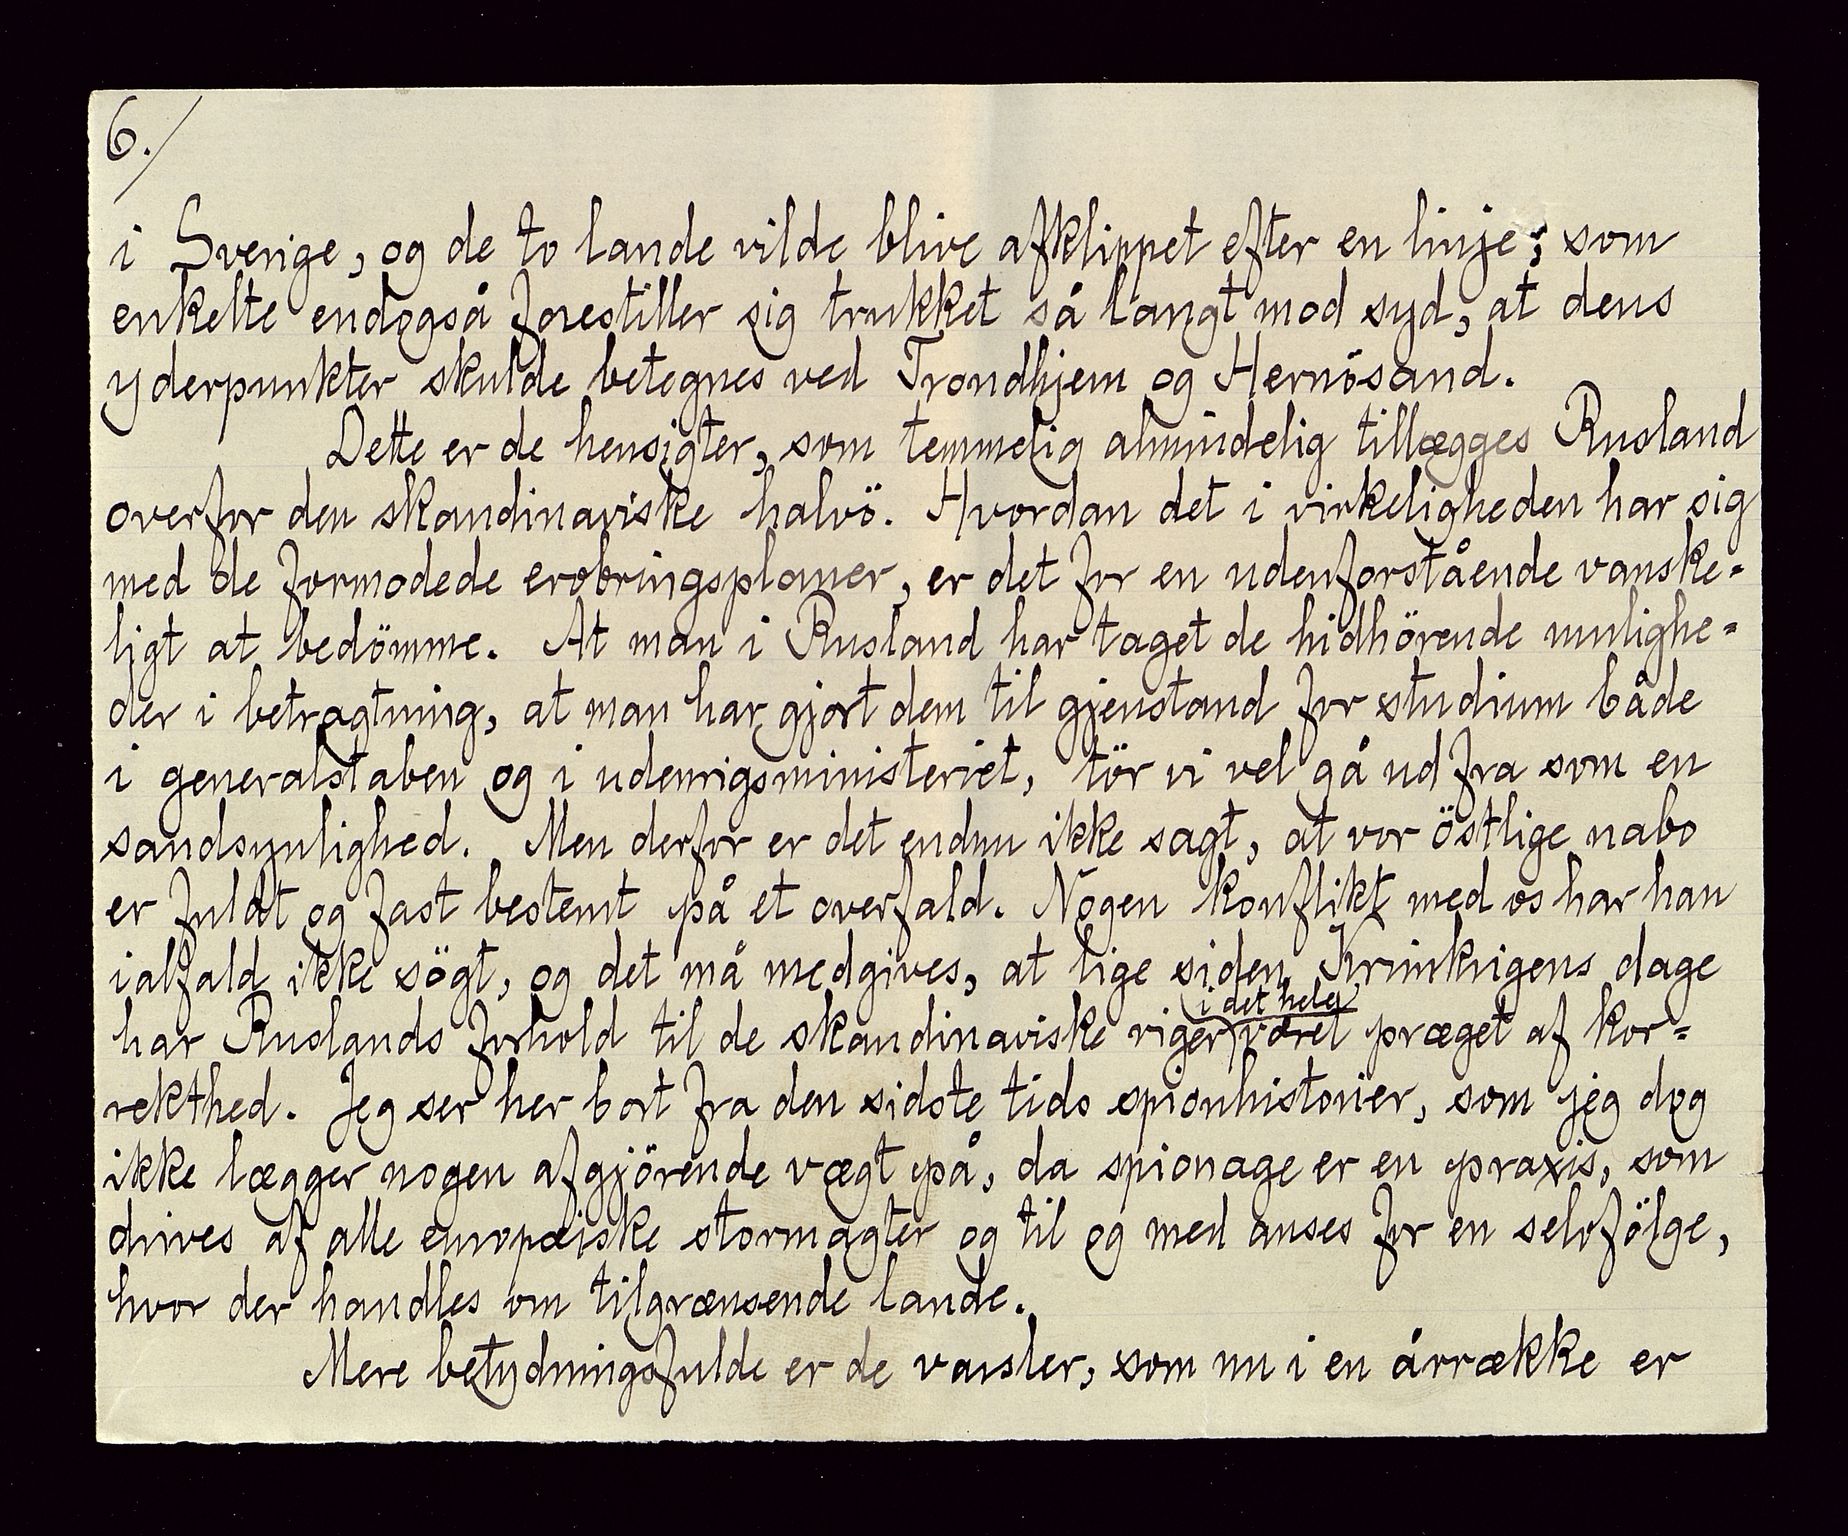 6./
i Sverige, og de to lande vilde blive afklippet efter en linje, som
enkelte endogså forestiller sig trukket så langt mod syd, at dens
yderpunkter skulde betegnes ved Trondhjem og Hernösand.
Dette er de hensigter, som temmelig almindelig tillægges Rusland
overfor den skandinaviske halvö. Hvordan det i virkeligheden har sig
med de formodede erobringsplaner, er det for en udenforstående vanske=
ligt at bedömme. At man i Rusland har taget de hidhörende mulighe=
der i betragtning, at man har gjort dem til gjenstand for studium både
i generalstaben og i udenrigsministeriet, tör vi vel gå ud fra som en
sandsynlighed. Men derfor er det endnu ikke sagt, at vor östlige nabo
er fuldt og fast bestemt på et overfald. Nogen konflikt med os har han
ialfald ikke sögt, og det må medgives, at lige siden Krimkrigens dage
i det hele
har Ruslands forhold til de skandinaviske riger været præget af kor=
rekthed. Jeg ser her bort fra den sidste tids spionhistorier, som jeg dog
ikke lægger nogen afgjörende vægt på, da spionage er en praxis, som
drives af alle europæiske stormagter og til og med anses for en selvfölge,
hvor der handles om tilgrænsende lande.
Mere betydningsfulde er de varsler, som nu i en årrække er